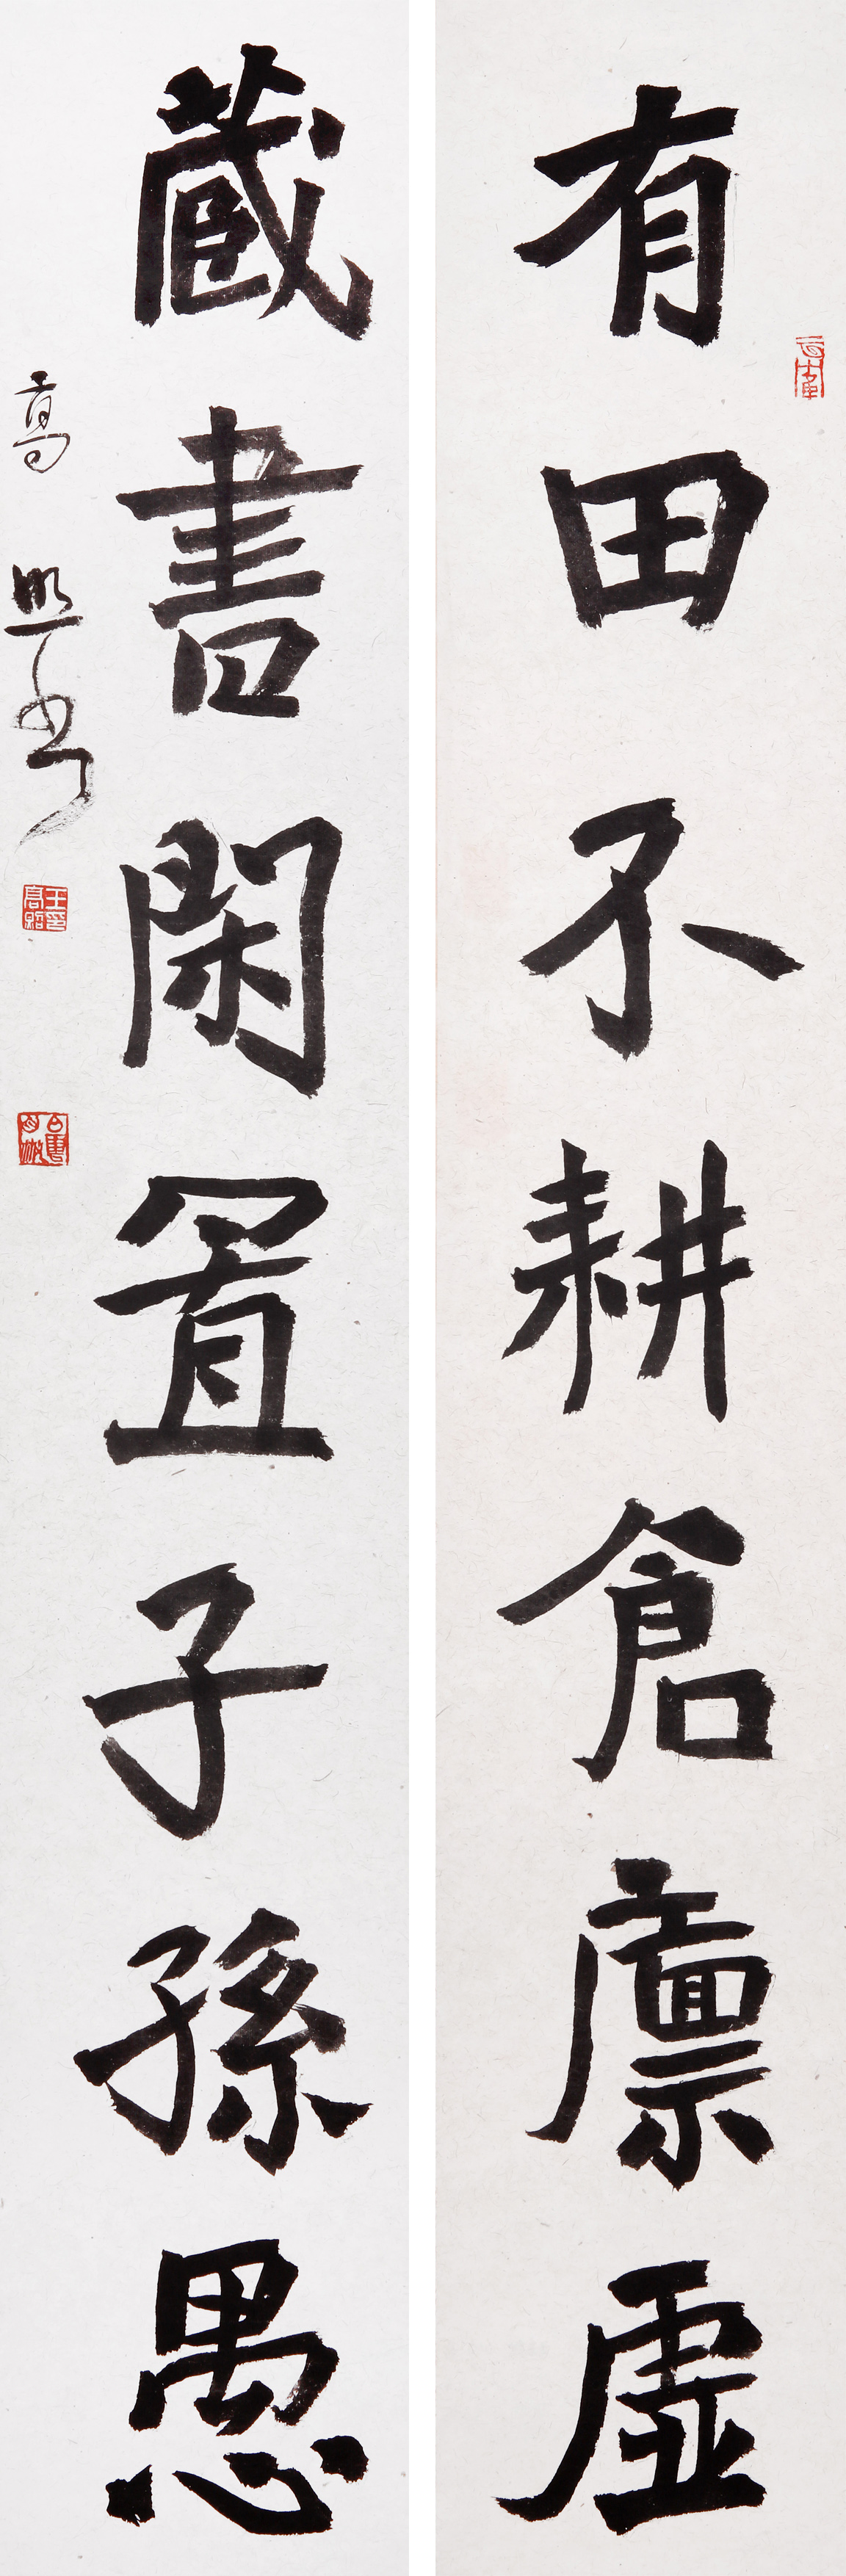 有田不耕倉廩虛
藏書閑置子孫愚
高照書